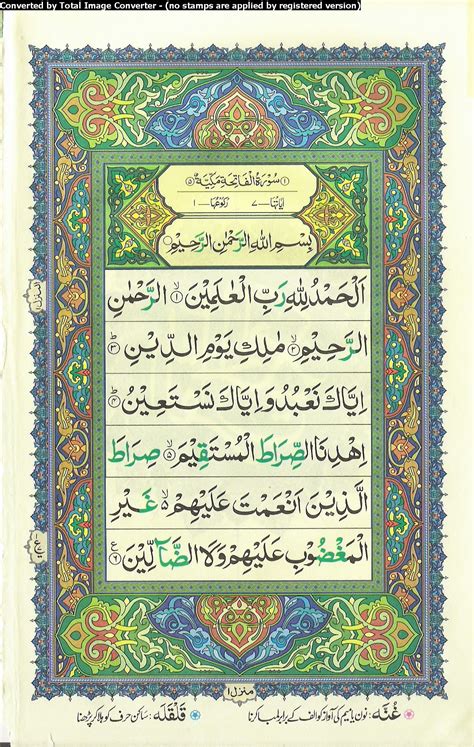 Converted by Total Image Converter - (no stamps are applied by registered version)
۱ سُوْرَةُ الْفَاتِحَةِ مَكِّيَّةٌ ۵
اٰيَاتُهَا ــ ۷ رُكُوْعُهَا ــ ۱
بِسْمِ اللهِ الرَّحْمٰنِ الرَّحِيْمِ
اَلْحَمْدُ لِلّٰهِ رَبِّ الْعٰلَمِيْنَ ۙ۱ الرَّحْمٰنِ
الرَّحِيْمِ ۙ۲ مٰلِكِ يَوْمِ الدِّيْنِ ؕ۳
اِيَّاكَ نَعْبُدُ وَ اِيَّاكَ نَسْتَعِيْنُ ؕ۴
اِهْدِنَا الصِّرَاطَ الْمُسْتَقِيْمَ ۙ۵ صِرَاطَ
الَّذِيْنَ اَنْعَمْتَ عَلَيْهِمْ ۙ۶ غَيْرِ
الْمَغْضُوْبِ عَلَيْهِمْ وَلَا الضَّآلِّيْنَ
المنزل ۱
منزل ۱
غُنَّه: نون یا میم کی آواز کو الف کے برابر لمبا کرنا قَلْقَلَه: ساکن حرف کو ہلا کر پڑھنا